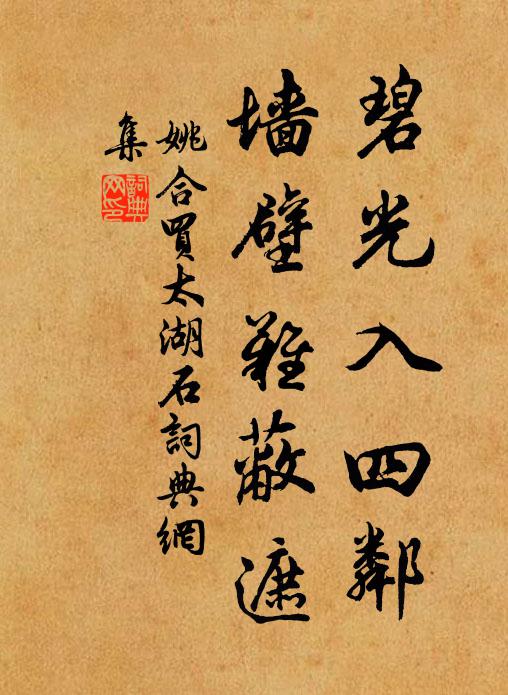 碧光入四鄰
墻壁難蔽遮
姚合買太湖石詞典網
集
詞典网印